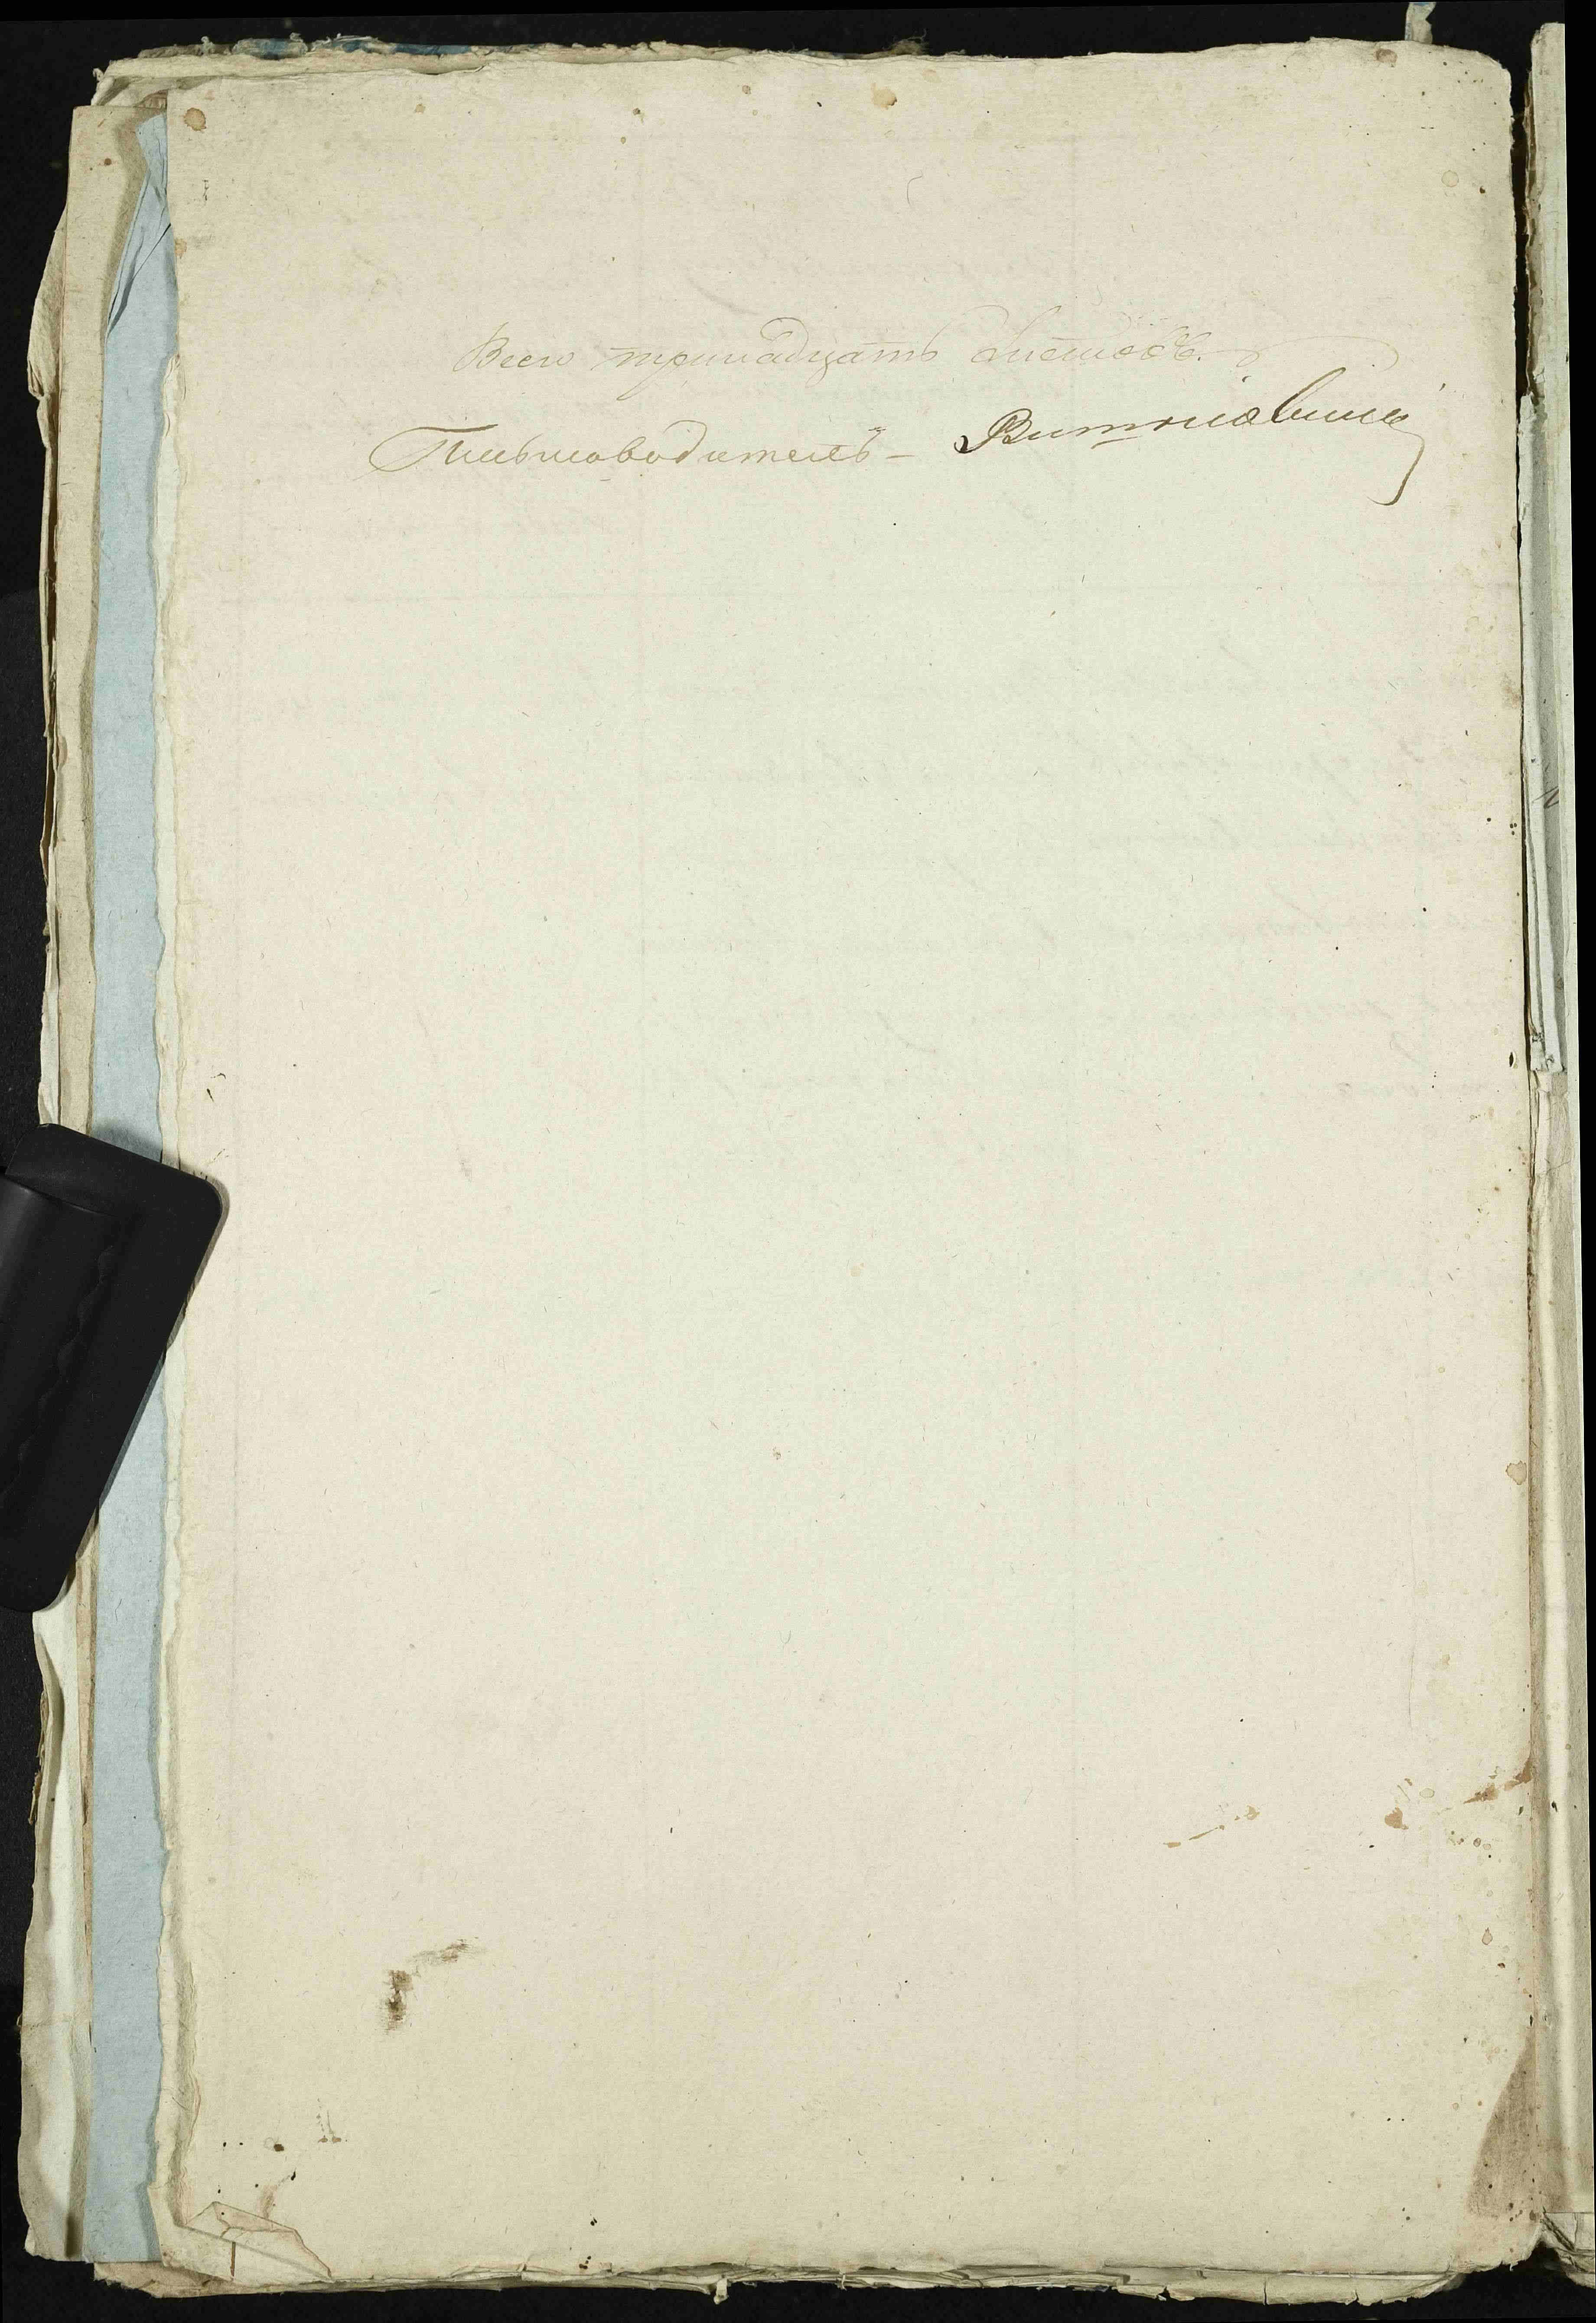 Всего тринадцать листовъ.
Письмоводитель –